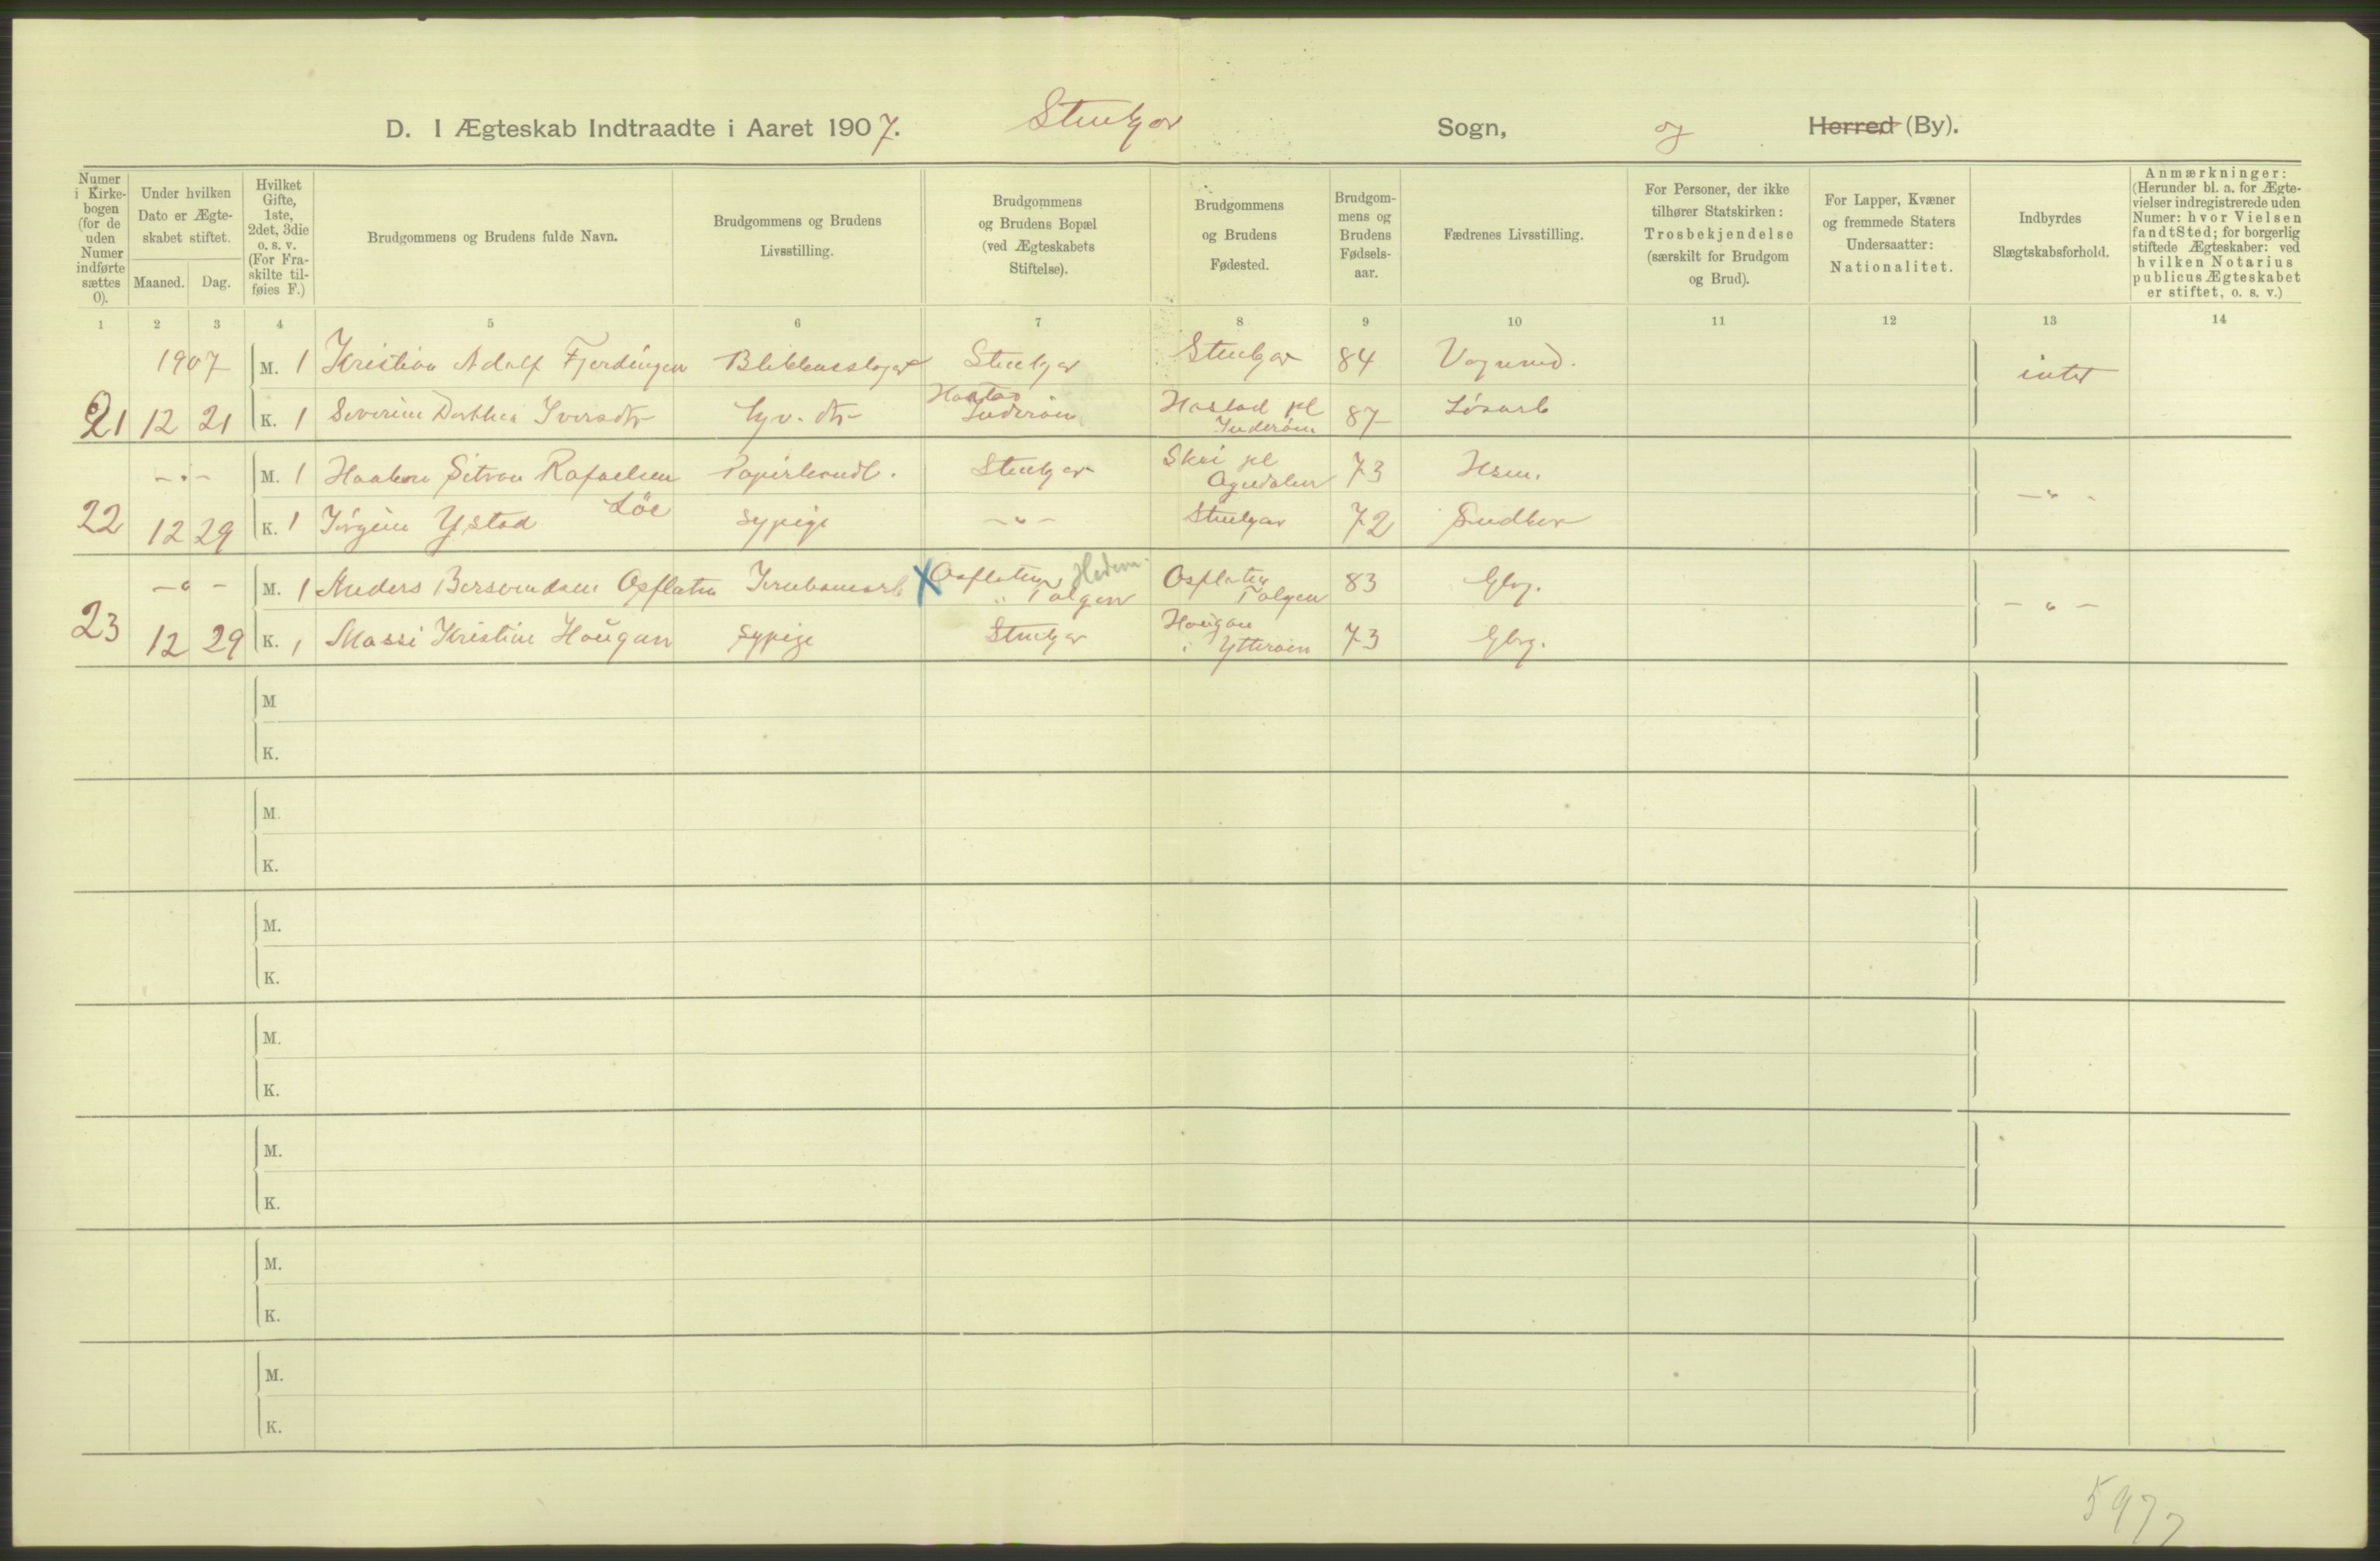 D. I Ægteskab Indtraadte i Aaret 1907. Stenkjær Sogn, og Herred (By).
Numer i Kirkebogen (for de uden Numer indførte sættes 0).
Under hvilken Dato er Ægteskabet stiftet.
Maaned. Dag.
Hvilket Gifte, 1ste, 2det, 3die o. s. v. (For Fraskilte tilføies F.)
Brudgommens og Brudens fulde Navn.
Brudgommens og Brudens Livsstilling.
Brudgommens og Brudens Bopæl (ved Ægteskabets Stiftelse).
Brudgommens og Brudens Fødested.
Brudgommens og Brudens Fødselsaar.
Fædrenes Livsstilling.
For Personer, der ikke tilhører Statskirken: Trosbekjendelse (særskilt for Brudgom og Brud).
For Lapper, Kvæner og fremmede Staters Undersaatter: Nationalitet.
Indbyrdes Slægtskabsforhold.
Anmærkninger: (Herunder bl. a. for Ægtevielser indregistrerede uden Numer: hvor Vielsen fandt Sted; for borgerlig stiftede Ægteskaber: ved hvilken Notarius publicus Ægteskabet er stiftet, o. s. v.)
1 2 3 4 5 6 7 8 9 10 11 12 13 14
1907 M. 1 Kristian Adolf Fjerdingen Blikkenslager Stenkjær Stenkjær 84 Vognmd. intet
21 12 21 K. 1 Severine Dorthea Iversdtr Inderøen Hastad pl Inderøen 87 Løsarb
-"- M. 1 Haakon Rafaelsen Papirhandl. Stenkjær Skei pl Ognedalen 73 Hsm. -"-
Löe
22 12 29 K. 1 Jørgine Ystad Sypige -"- Stenkjær 72
-"- M. 1 Anders Bersvendsen Osflaten Jernbanearb X Osflaten Hedem. i Tolgen Osflaten Tolgen 83 Gbrg. -"-
23 12 29 K. 1 Massi Kristine Hougan Sypige Stenkjær Hougan i Ytterøen 73 Gbrg.
M
K.
M.
K.
M.
K.
M.
K.
M.
K.
M.
K.
M.
K.
5977